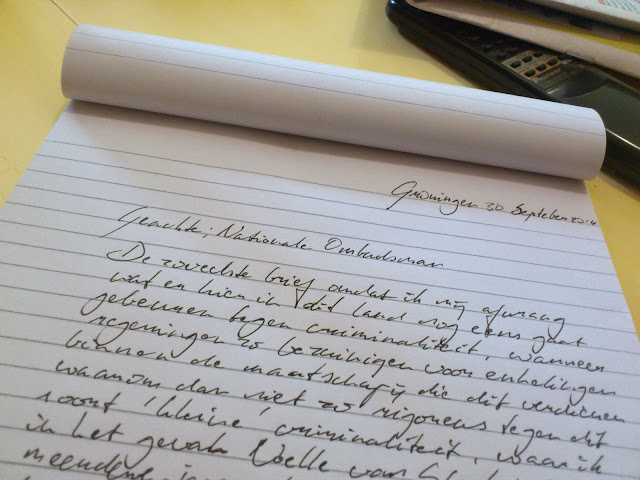 Groningen 30 September 2014
Geachte; Nationale Ombudsman
De zoveelste brief omdat ik mij afvraag
wat en hier in dit land nog eens gaat
gebeuren tegen criminaliteit, wanneer
regeringen zo bezuinigen voor enkelingen
binnen de maatschappij die dit verdienen
waarom dan niet zo rigoureus tegen dit
soort 'kleine' criminaliteit, waar ik
in het geval Noelle van